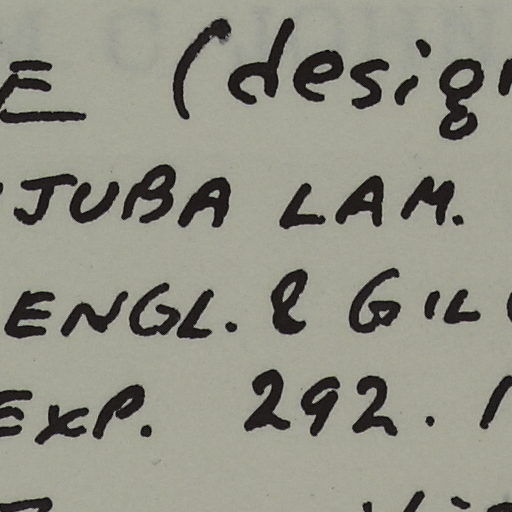 E (design
JUBA LAM.
ENGL. & GIL
EXP. 292.